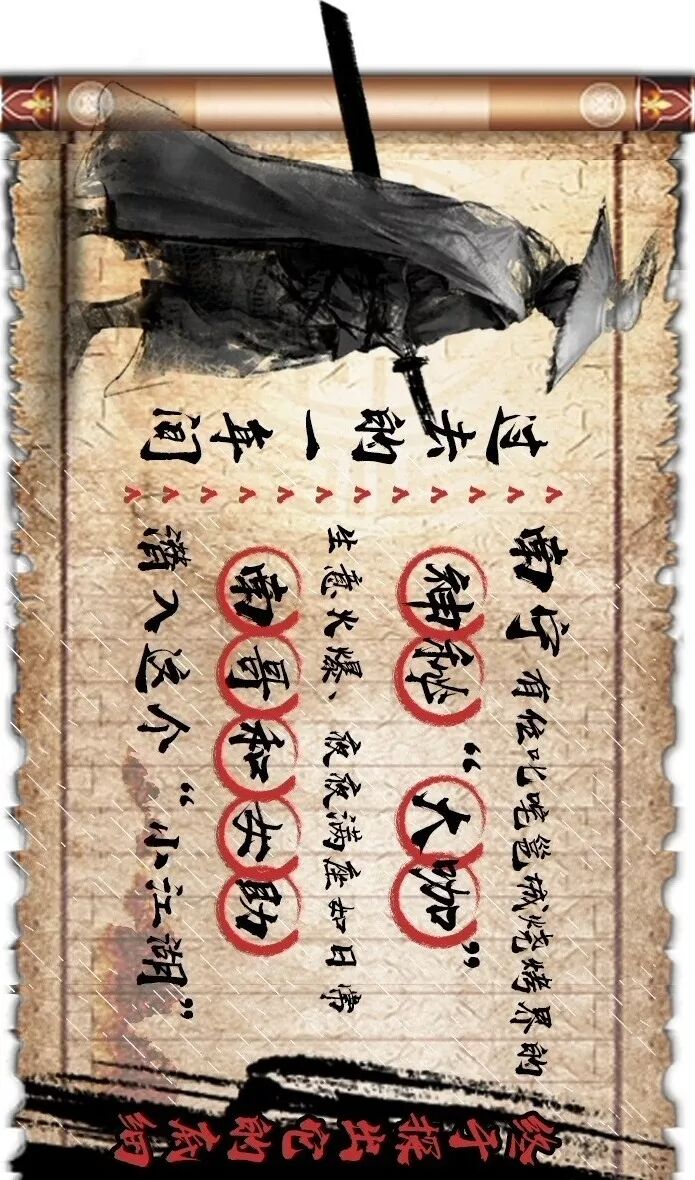 过去的一年间
南宁有位叱咤邕城烧烤界的
神秘“大咖”
生意火爆、夜夜满座如日常
南哥和女助
潜入这个“小江湖”
终于探出它的底细